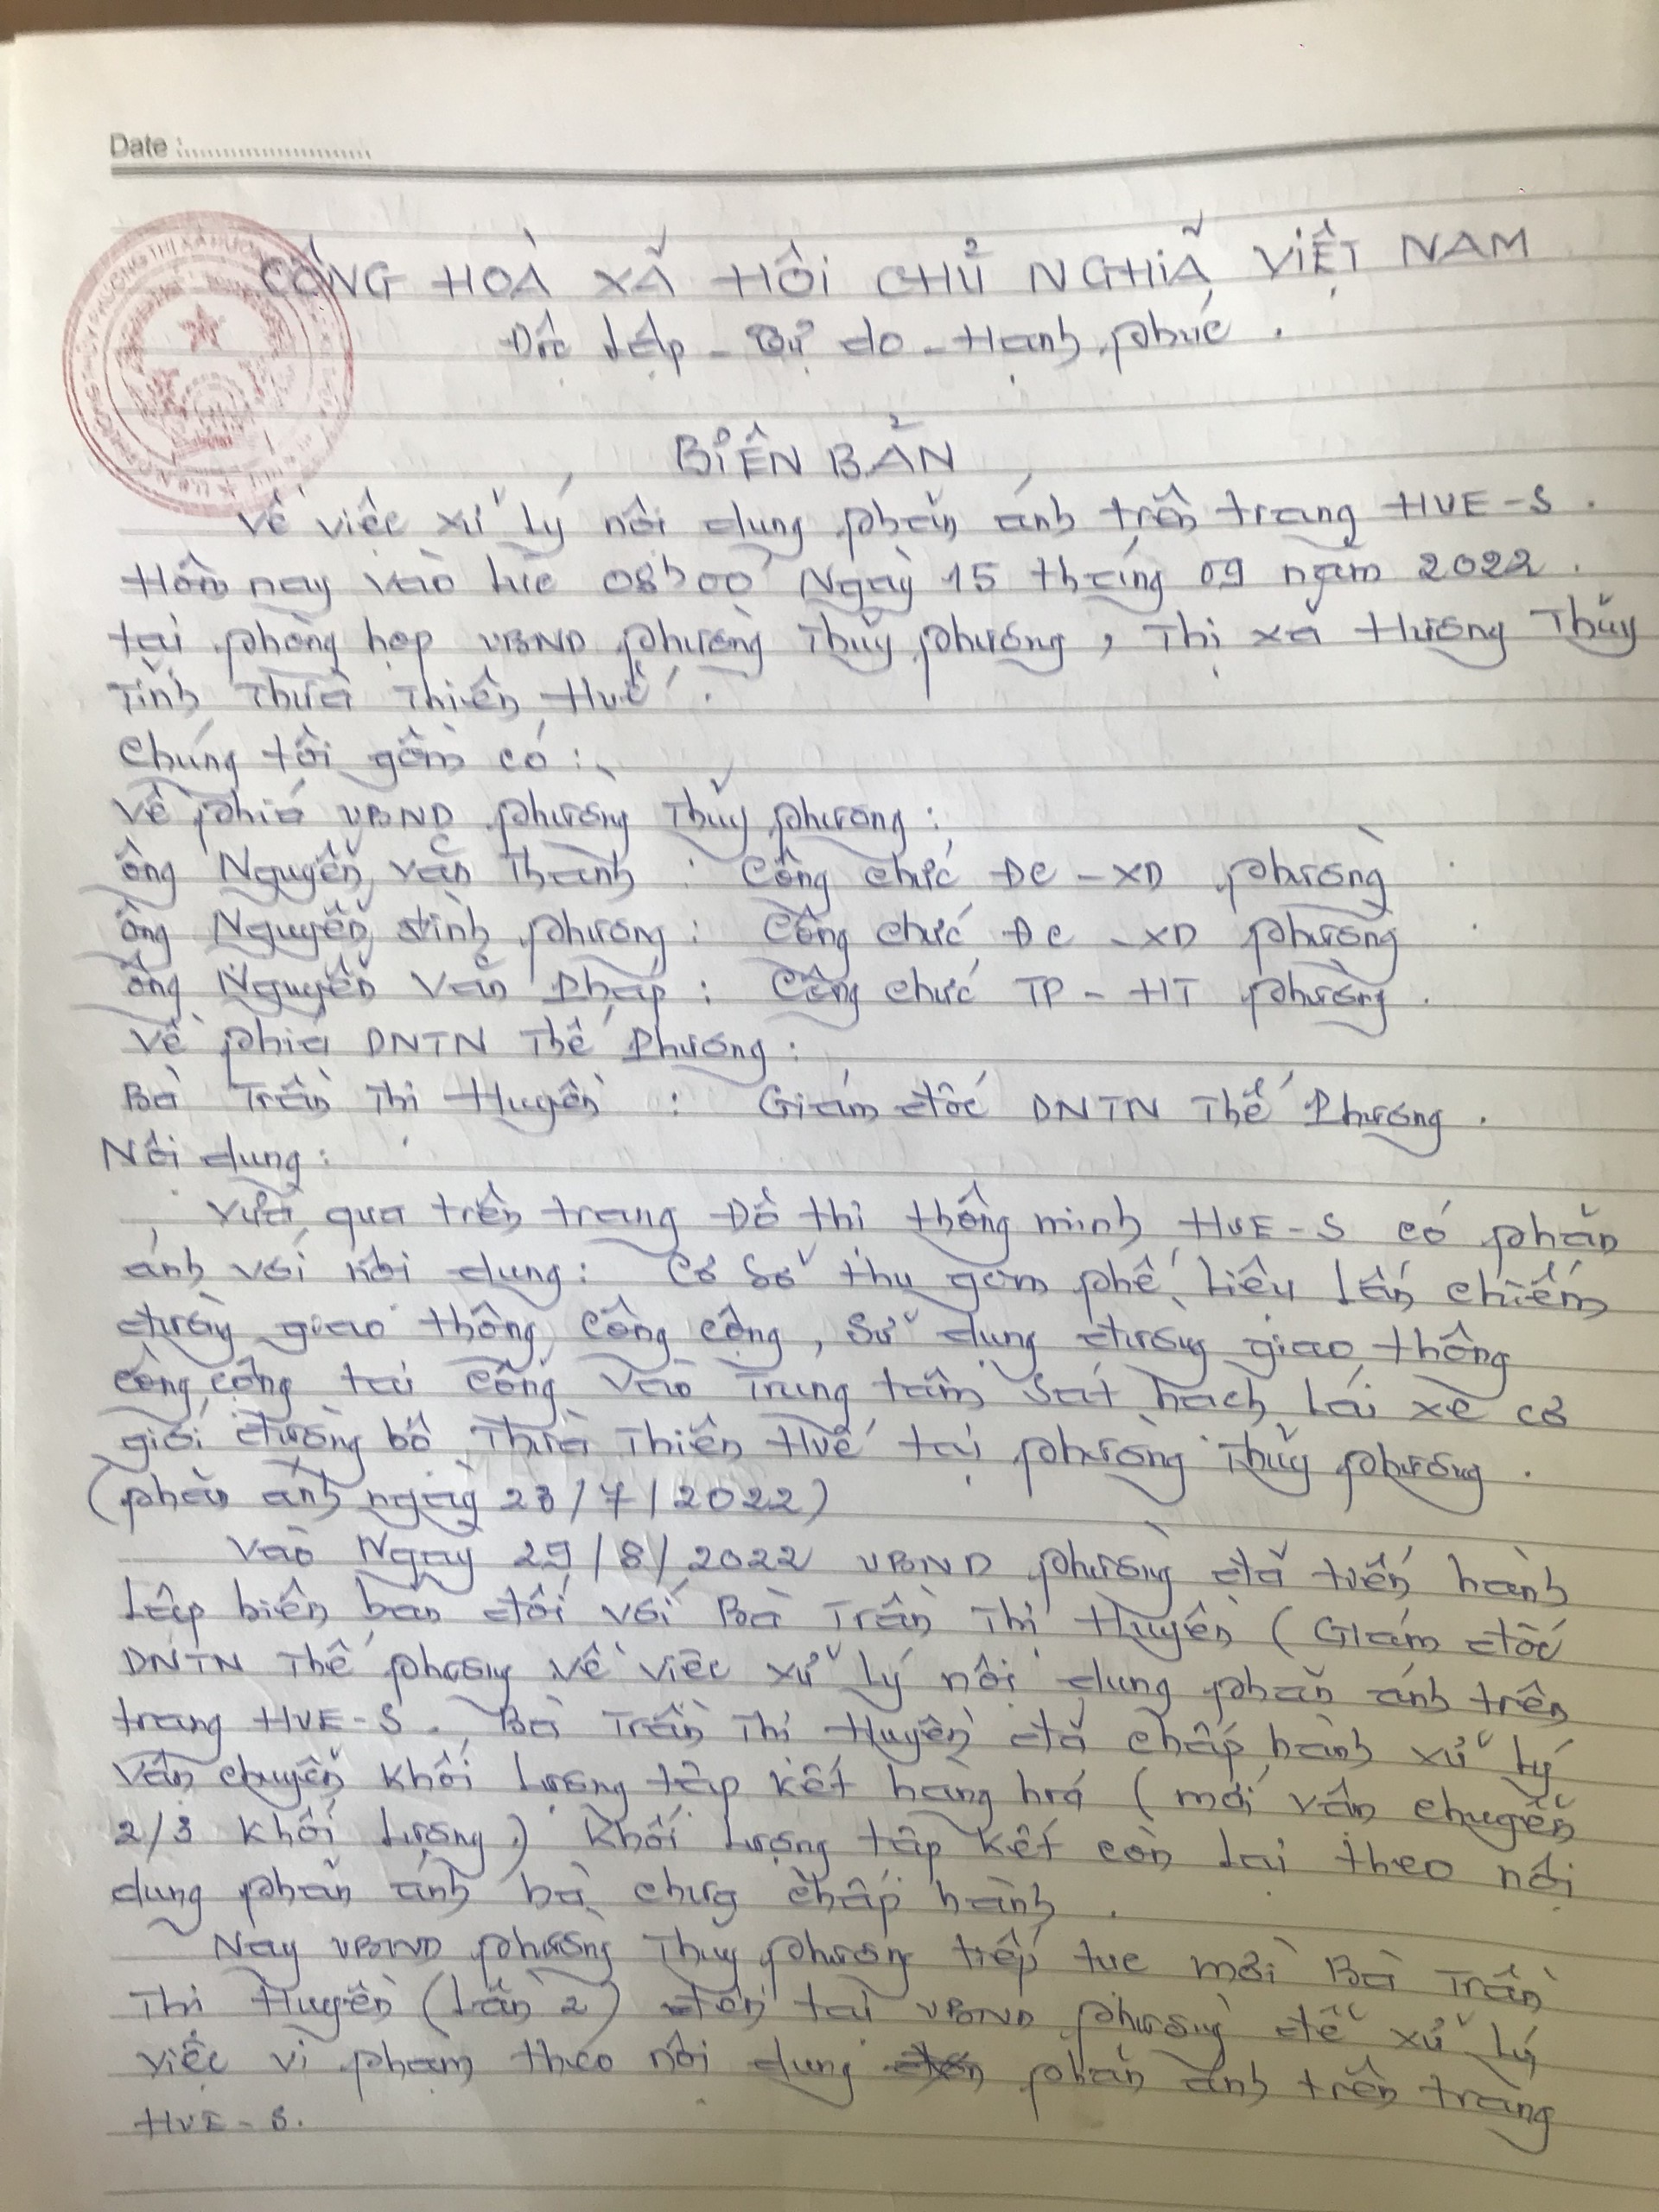 Date :
CỘNG HOÀ XÃ HỘI CHỦ NGHĨA VIỆT NAM
Độc lập - Tự do - Hạnh phúc.
BIÊN BẢN
Về việc xử lý nội dung phản ánh trên trang HUE-S.
Hôm nay vào lúc 08h00' Ngày 15 tháng 09 năm 2022.
tại phòng họp UBND phường Thủy phương, Thị xã Hương Thủy
Tỉnh Thừa Thiên Huế.
Chúng tôi gồm có:
Về phía UBND phường Thủy phương:
ông Nguyễn văn Thành : Công chức ĐC-XD phường
ông Nguyễn đình phương: Công chức ĐC-XD phường
ông Nguyễn Văn Pháp: Công chức TP-HT phường.
Về phía DNTN Thế Phương:
Bà Trần Thị Huyền : Giám đốc DNTN Thế Phương.
Nội dung:
Vừa qua trên trang Đô thị thông minh HUE-S có phản
ánh với nội dung: Cơ sở thu gom phế liệu lấn chiếm
đường giao thông công cộng, sử dụng đường giao thông
công cộng tại cổng vào Trung tâm sát hạch lái xe cơ
giới đường bộ Thừa Thiên Huế tại phường Thủy phương.
(phản ánh ngày 23/7/2022)
Vào Ngày 29/8/2022 UBND phường đã tiến hành
lập biên bản đối với Bà Trần Thị Huyền (Giám đốc
DNTN Thế phương về việc xử lý nội dung phản ánh trên
trang HUE-S. Bà Trần Thị Huyền đã chấp hành xử lý
vận chuyển khối lượng tập kết hàng hoá (mới vận chuyển
2/3 khối lượng) khối lượng tập kết còn lại theo nội
dung phản ánh bà chưa chấp hành.
Nay UBND phường Thủy phương tiếp tục mời Bà Trần
Thị Huyền (lần 2) đến tại UBND phường để xử lý
việc vi phạm theo nội dung phản ánh trên trang
HUE-S.